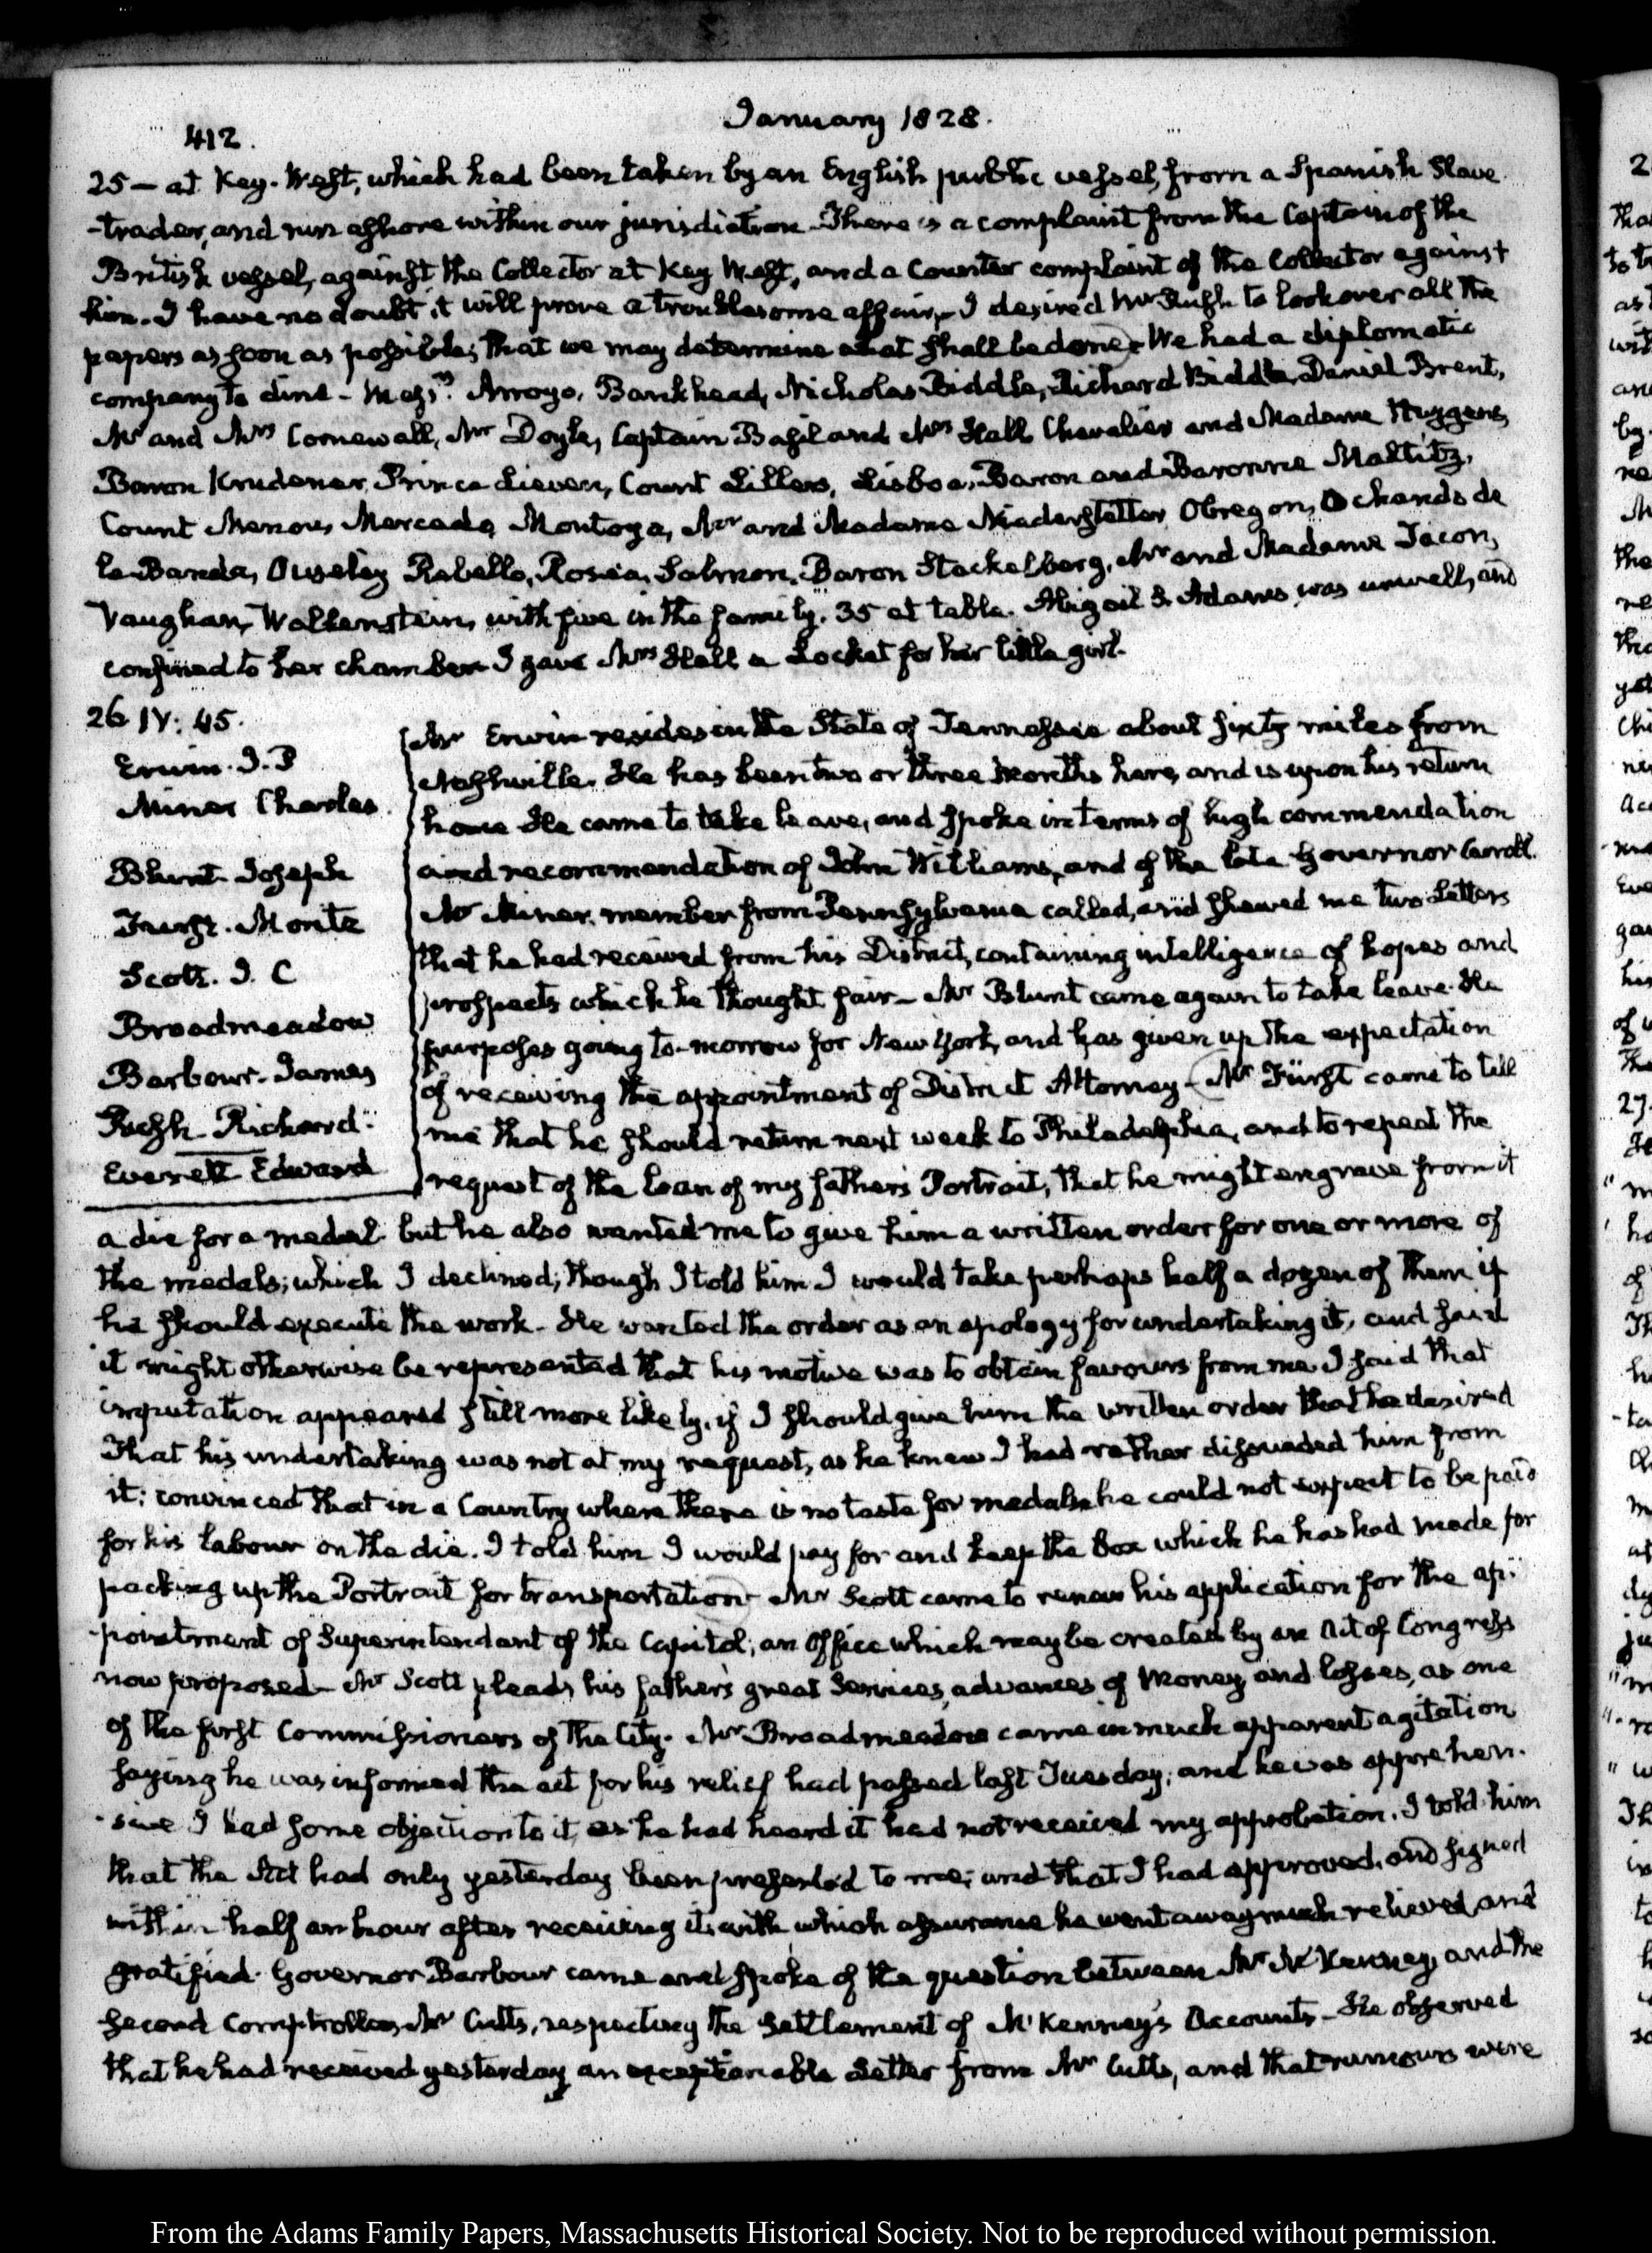 412.
January 1828.
25 — at Key-West, which had been taken by an English public vessel, from a Spanish Slave
-trader, and run ashore within our jurisdiction. There is a complaint from the Captain of the
British vessel, against the Collector at Key West, and a Counter complaint of the Collector against
him. I have no doubt it will prove a troublesome affair. I desired Mr Rush to look over all the
papers as soon as possible; that we may determine what shall be done — We had a diplomatic
company to dine — Messrs. Arroyo, Bankhead, Nicholas Biddle, Richard Biddle, Daniel Brent,
Mr and Mrs Cornewall, Mr Doyle, Captain Basil and Mrs Hall, Chevalier and Madame Huygens,
Baron Krudener, Prince Lieven, Count Lillers, Lisboa, Baron and Baronne Maltitz,
Count Menou, Mercado, Montoya, Mr and Madame Niederstetter, Obregon, Ochando de
la Banda, Ouseley, Rebello, Salmon, Baron Stackelberg, Mr and Madame Tacon,
Vaughan, Wallenstein, with five in the family. 35 at table. Abigail S. Adams was unwell, and
confined to her chamber. I gave Mrs Hall a Locket for her little girl.
26 IV: 45.
Erwin. J. P
Miner Charles.
Blunt Joseph
Furst. Moritz
Scott. J. C
Broadmeadow
Barbour. James
Rush Richard.
Everett Edward
Mr Erwin resides in the State of Tennessee about sixty miles from
Nashville. He has been two or three Months here, and is upon his return
home. He came to take leave, and spoke in terms of high commendation
and recommendation of John Williams, and of the late Governor Carroll.
Mr Miner, member from Pennsylvania called, and shewed me two Letters
that he had received from his District, containing intelligence of hopes and
prospects which he thought fair — Mr Blunt came again to take leave. He
purposes going to-morrow for New York, and has given up the expectation
of receiving the appointment of District Attorney — Mr Fürst came to tell
me that he should return next week to Philadelphia, and to repeat the
request of the loan of my father's Portrait, that he might engrave from it
a die for a medal. but he also wanted me to give him a written order for one or more of
the medals; which I declined; though I told him I would take perhaps half a dozen of them if
he should execute the work. He wanted the order as an apology for undertaking it, and said
it might otherwise be represented that his motive was to obtain favours from me. I said that
imputation appeared still more likely, if I should give him the written order that he desired
That his undertaking was not at my request, as he knew I had rather dissuaded him from
it; convinced that in a Country where there is no taste for medals he could not expect to be paid
for his labour on the die. I told him I would pay for and keep the box which he has had made for
packing up the Portrait for transportation — Mr Scott came to renew his application for the ap-
-pointment of Superintendant of the Capitol; an Office which may be created by an Act of Congress
now proposed — Mr Scott pleads his father's great Services, advances of Money and losses, as one
of the first Commissioners of the City. Mr Broadmeadow came in much apparent agitation
saying he was informed the act for his relief had passed last Tuesday; and he was apprehen-
-sive I had some objection to it, as he had heard it had not received my approbation. I told him
that the Act had only yesterday been presented to me; and that I had approved, and signed
within half an hour after receiving it; with which assurance he went away much relieved and
gratified. Governor Barbour came and spoke of the question between Mr McKenney, and the
Second Comptroller, Mr Cutts, respecting the Settlement of McKenney's Accounts — He observed
that he had received yesterday an exceptionable Letter from Mr Cutts, and that rumours were
From the Adams Family Papers, Massachusetts Historical Society. Not to be reproduced without permission.